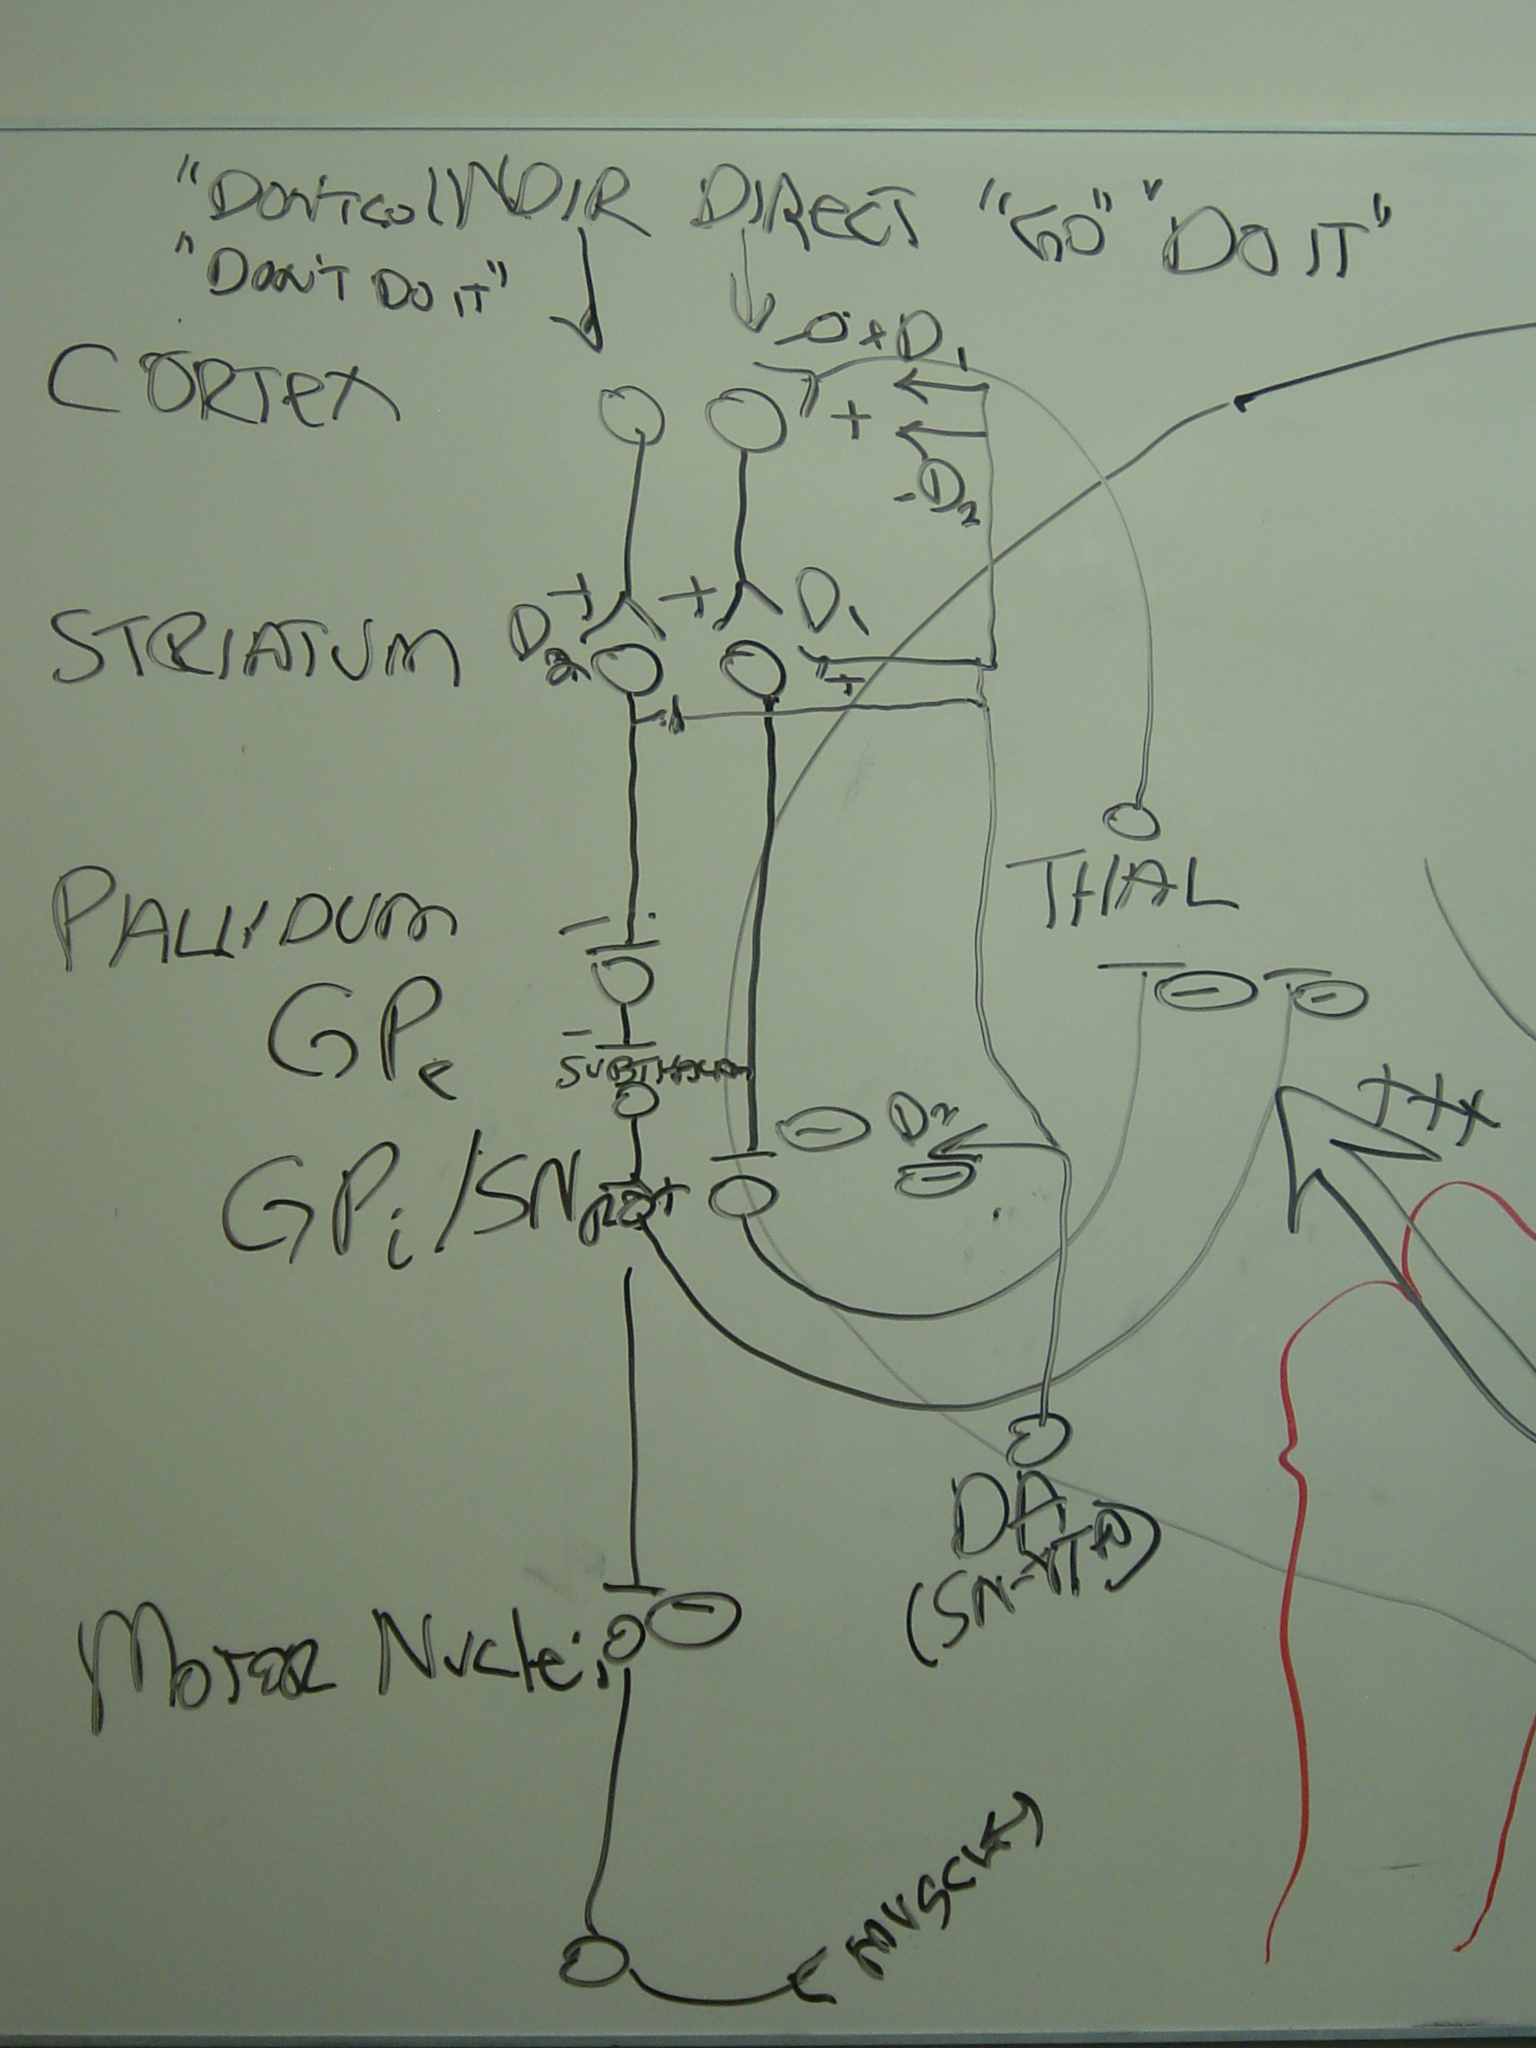 "DON'T GO" INDIR DIRECT "GO" "DO IT"
"DON'T DO IT"
D1
CORTEX
+
-D2
+ + D1
STRIATUM D2
+
THAL
PALLIDUM
-
GPe
- -
-
SUBTHALAM
+++
- D2
-
GPi/SN
+
DA
(SN-VTA)
MOTOR NUCLEI -
(MUSCLE)